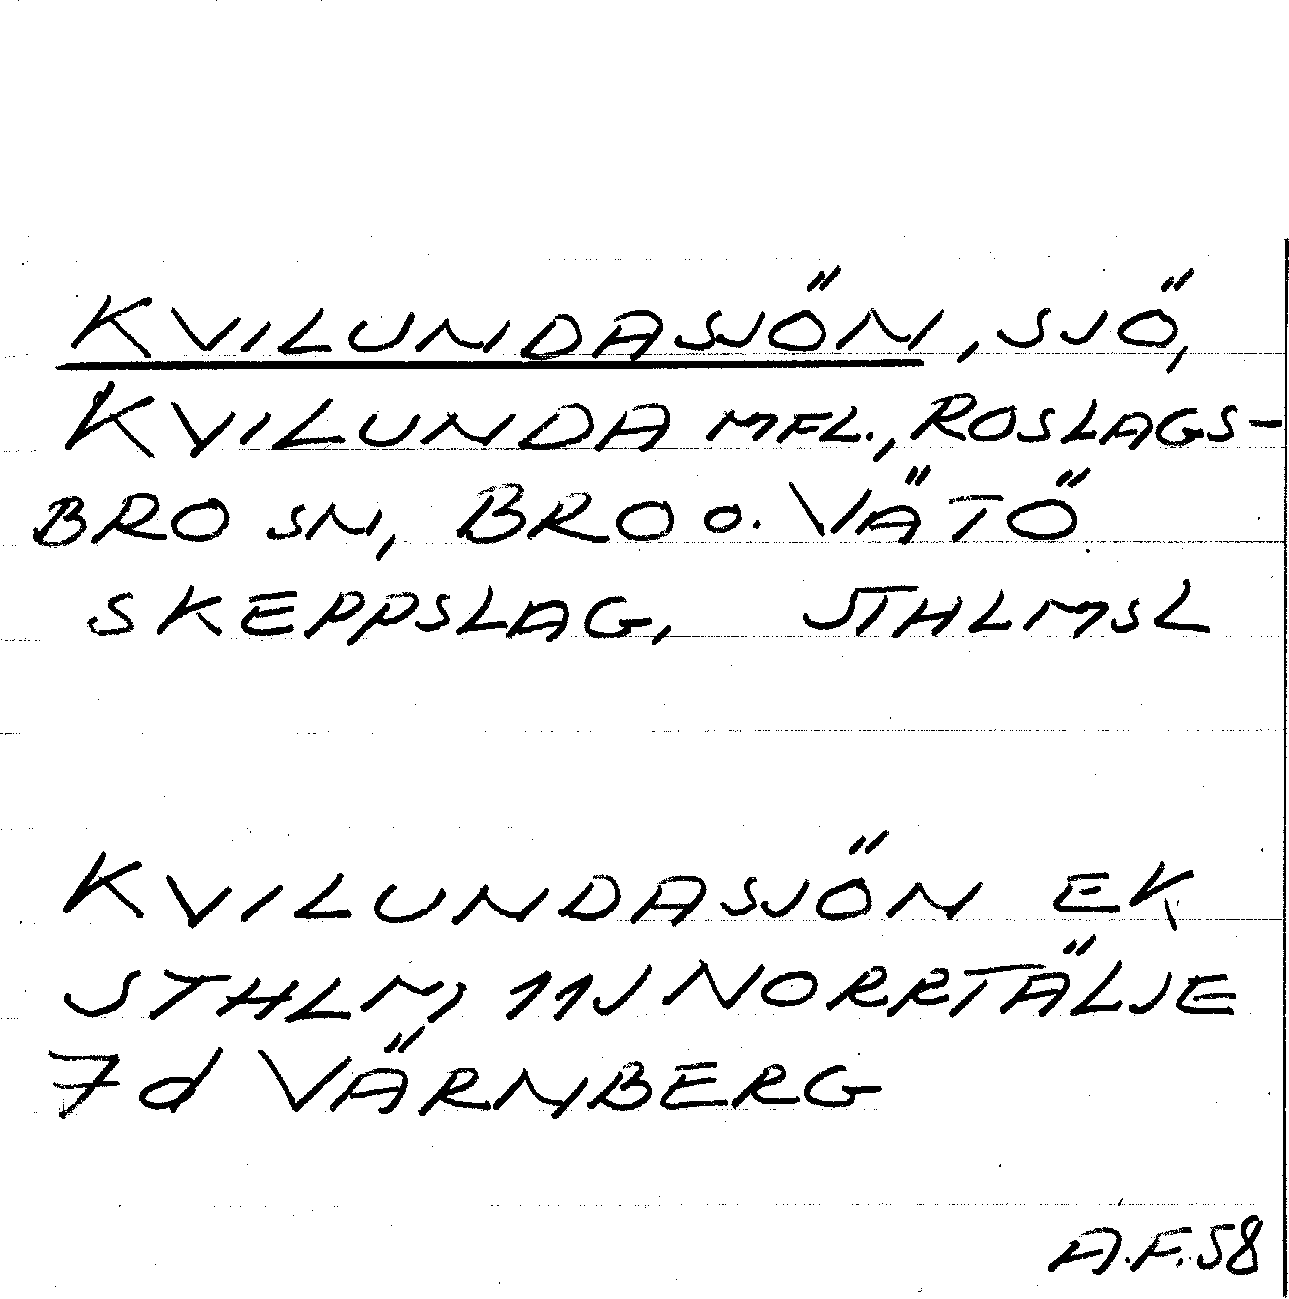 KVILUNDASJÖN, SJÖ,
KVILUNDA MFL., ROSLAGS-
BRO SN, BRO O. VÄTÖ
SKEPPSLAG, STHLMSL
KVILUNDASJÖN EK
STHLM, 11J NORRTÄLJE
7d VÄRNBERG
A.F. 58